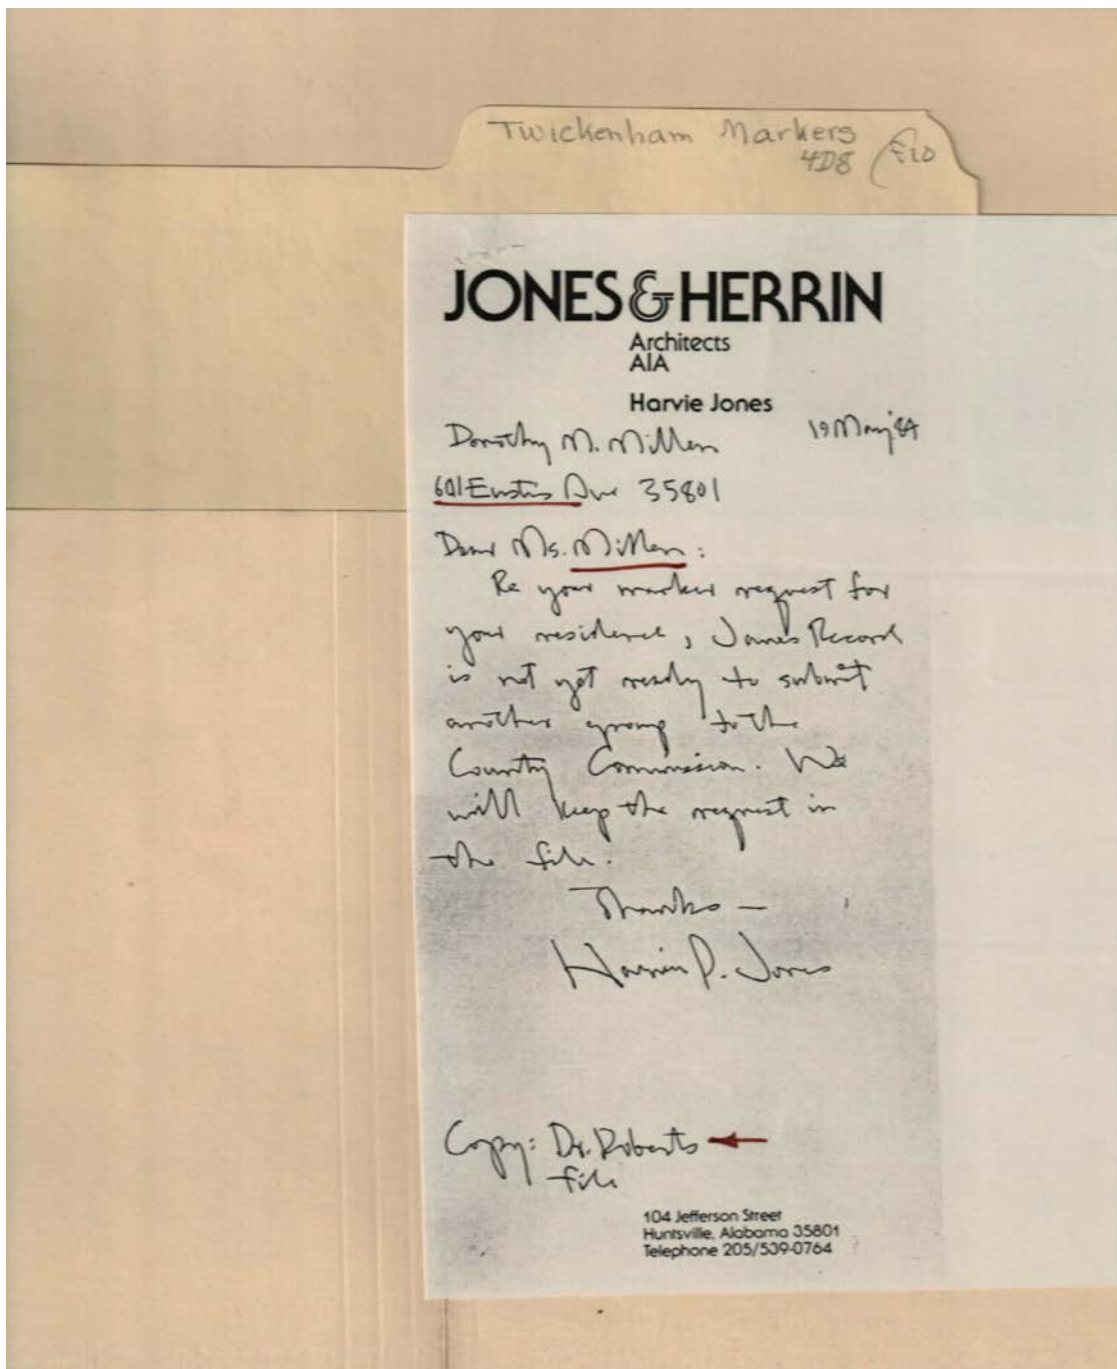 Twickenham Markers
4D8
JONES & HERRIN
Architects
AIA
Harvie Jones
19 May '84
Dorothy M. Miller
601 Eustis Ave 35801
Dear Ms. Miller:
Re your marker request for
your residence, James Record
is not yet ready to submit
another group to the
County Commission. We
will keep the request in
the file.
Thanks —
Harvie P. Jones
Copy: Dr. Roberts
file
104 Jefferson Street
Huntsville, Alabama 35801
Telephone 205/539-0764